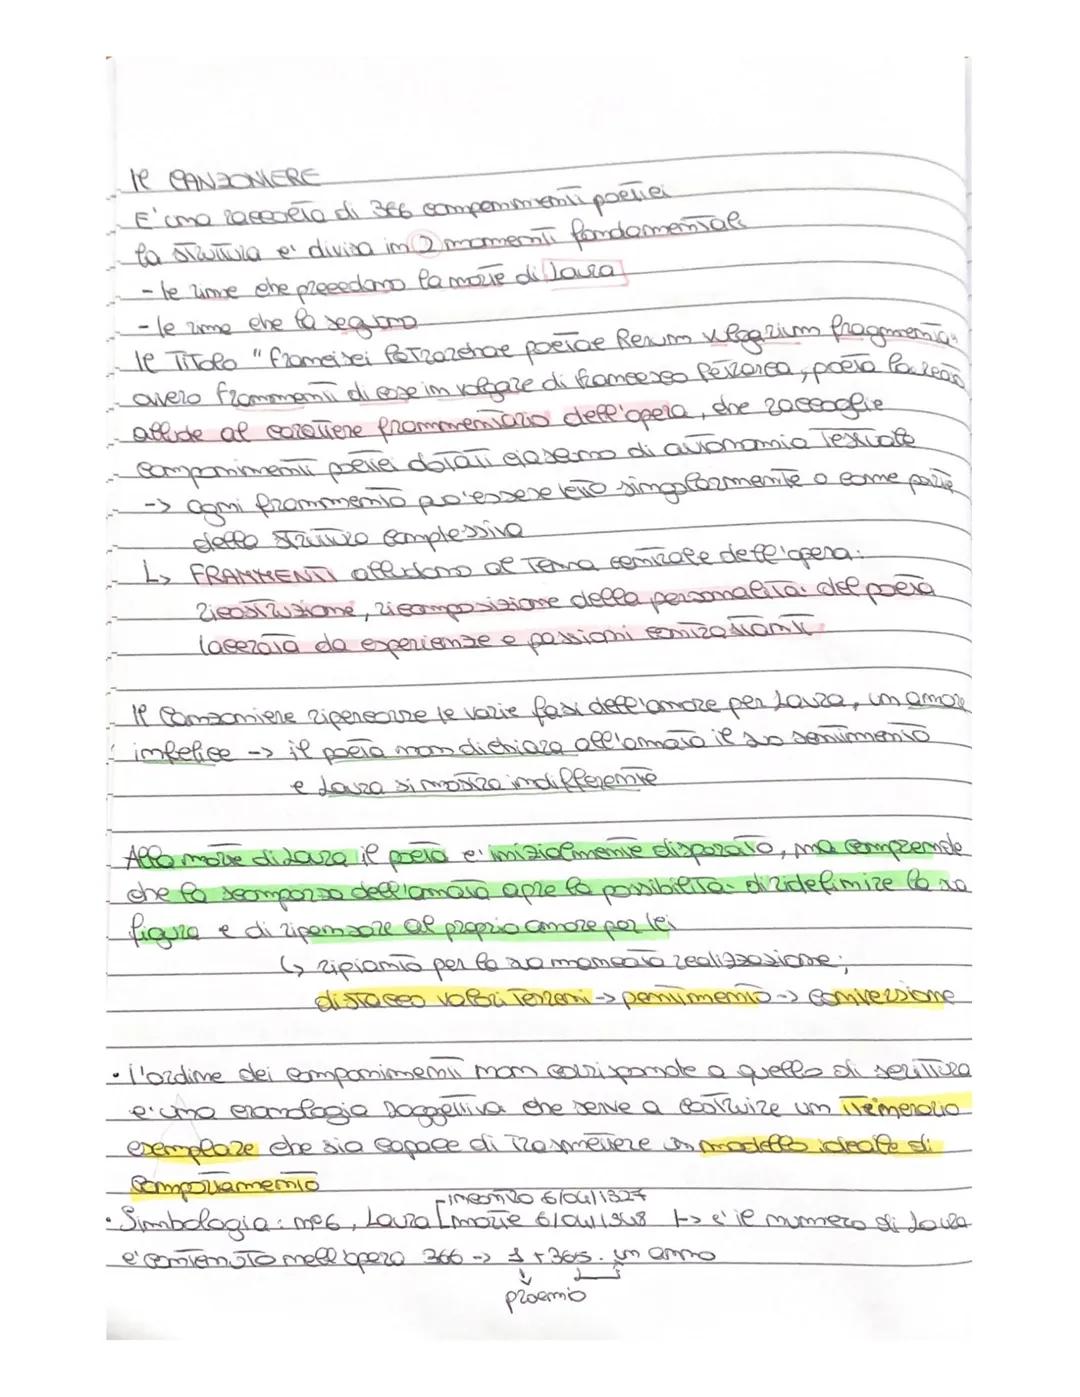 Il CANZONIERE
E' una raccolta di 366 componimenti poetici
la struttura e' divisa in 2 momenti fondamentali
- le rime che precedono la morte di Laura
- le rime che la seguono
Il Titolo "Francisci Petrarchae poetae Rerum vulgarium fragmenta"
ovvero frammenti di cose in volgare di francesco Petrarca, poeta
allude al carattere frammentario dell'opera, che raccoglie
componimenti poetici dotati ciascuno di autonomia Testuale
-> ogni frammento puo' essere letto singolarmente o come parte
della struttura complessiva
↳ FRAMMENTI alludono al Tema centrale dell'opera:
ricostruzione, ricomposizione della personalità del poeta
lacerata da esperienze e passioni contrastanti
Il Canzoniere ripercorre le varie fasi dell'amore per Laura, un amore
infelice -> il poeta non dichiara all'amata il suo sentimento
e Laura si mostra indifferente
Alla morte di Laura il poeta e' inizialmente disperato, ma comprende
che la scomparsa dell'amata apre la possibilità di ridefinire la sua
figura e di ripensare al proprio amore per lei
↳ ripianto per la sua mancata realizzazione;
distacco valori Terreni -> pentimento -> conversione
• l'ordine dei componimenti non corrisponde a quello di scrittura
e' una cronologia soggettiva che serve a costruire un iTemerario
esemplare che sia capace di Trasmettere un modello ideale di
comportamento
incontro 6/04/1327
• Simbologia: n°6, Laura [morte 6/04/1348 |-> e' il numero di Laura
e' contenuto nell'opera 366 -> 1 + 365. un anno
proemio